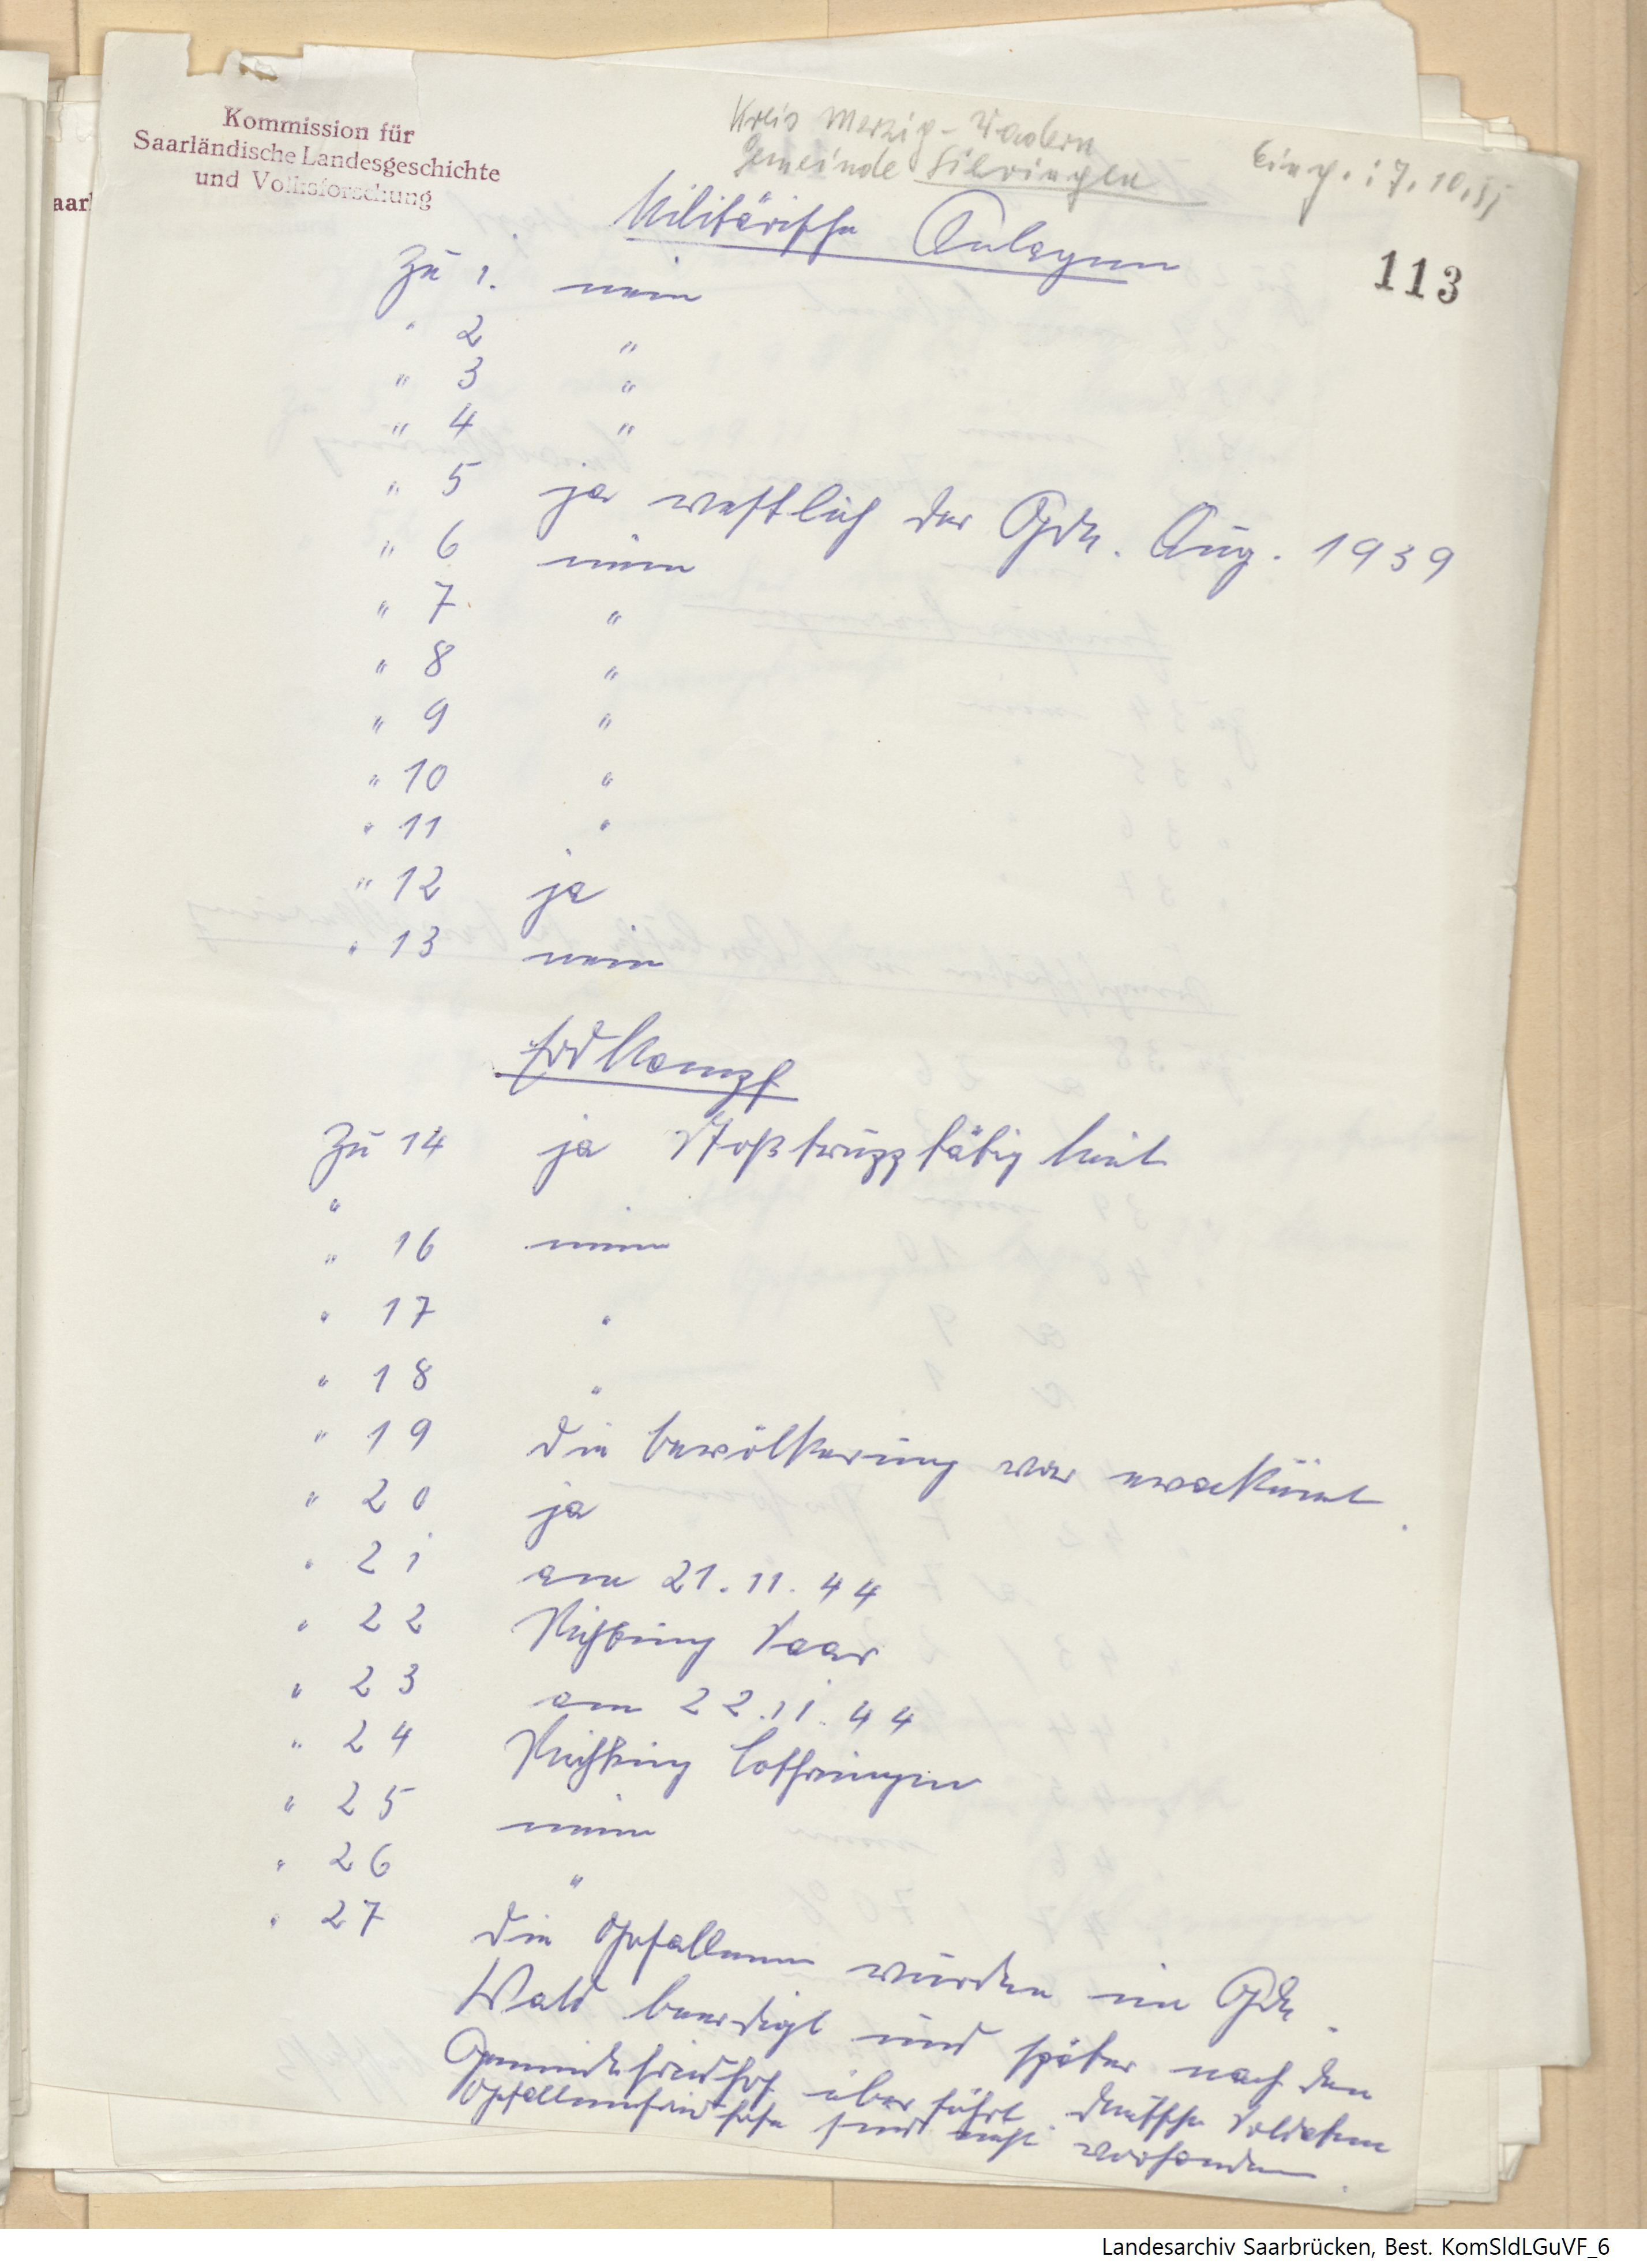 Kommission für
Saarländische Landesgeschichte
und Volksforschung
Kreis Merzig-Wadern
Gemeinde Silvingen
Eing.: 7.10.51
aar
113
Militärische Anlagen
Zu 1. nein
" 2 "
" 3 "
" 4 "
" 5 ja westlich der Gde. Aug. 1939
" 6 nein
" 7 "
" 8 "
" 9 "
" 10 "
" 11 "
" 12 ja
" 13 nein
Erdkampf
Zu 14 ja Stoßtrupptätigkeit
"
" 16 nein
" 17 "
" 18 "
" 19 die Bevölkerung war evakuiert.
" 20 ja
" 21 am 21.11.44
" 22 Richtung Saar
" 23 am 22.11.44
" 24 Richtung Lothringen
" 25 nein
" 26 "
" 27 die Gefallenen wurden im Gde.
Wald beerdigt und später nach den
Gemeindefriedhof überführt. deutsche Soldaten
Gefallenenfriedhöfe sind nicht vorhanden.
Landesarchiv Saarbrücken, Best. KomSldLGuVF_6